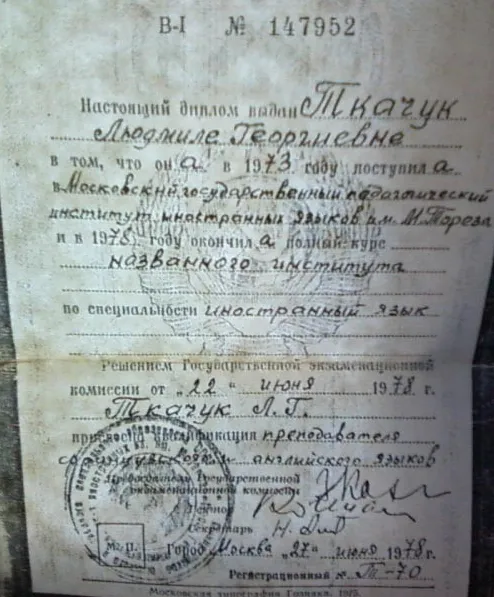 В-I № 147952
Настоящий диплом выдан Ткачук
Людмиле Георгиевне
в том, что он а в 1973 году поступил а
в Московский государственный педагогический
институт иностранных языков им. М. Тореза
и в 1978 году окончил а полный курс
названного института
по специальности иностранный язык
Решением Государственной экзаменационной
комиссии от „22“ июня 1978 г.
Ткачук Л. Г.
присвоена квалификация преподавателя
и английского языков
Председатель Государственной
экзаменационной комиссии
Ректор
Секретарь
М. П. Город Москва „27“ июня 1978 г.
Регистрационный № Т-70
Московская типография Гознака. 1975.